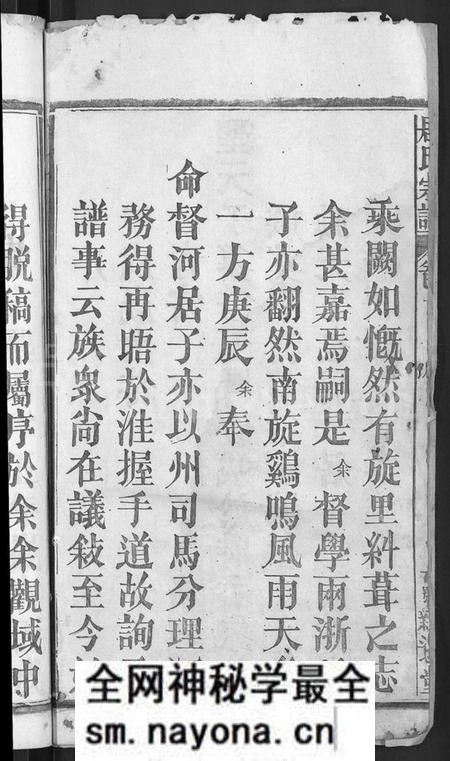 居氏宗譜
乘闕如慨然有旋里糾葺之志
余甚嘉焉嗣是余督學兩浙
子亦翻然南旋鷄鳴風雨天
一方庚辰余奉
命督河居子亦以州司馬分理
務得再晤於淮握手道故詢
譜事云族衆尚在議敍至今
得脱稿而屬序於余余觀域中
全网神秘学最全
sm.nayona.cn